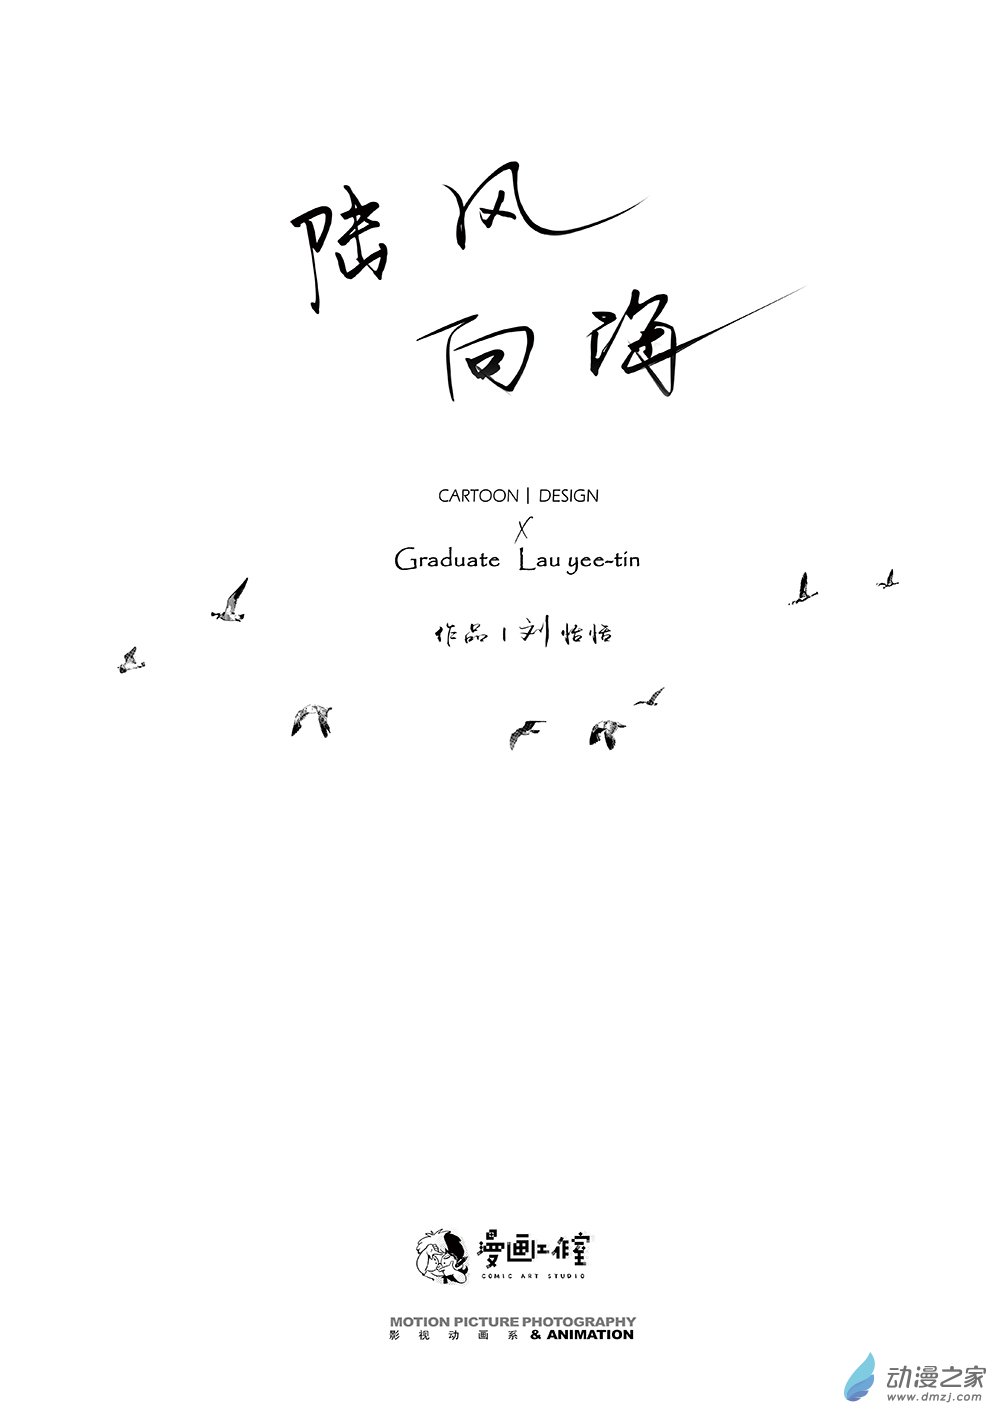 陆风
向海
CARTOON | DESIGN
X
Graduate Lau yee-tin
作品 | 刘怡恬
漫画工作室
COMIC ART STUDIO
MOTION PICTURE PHOTOGRAPHY
影视动画系 & ANIMATION
动漫之家
www.dmzj.com